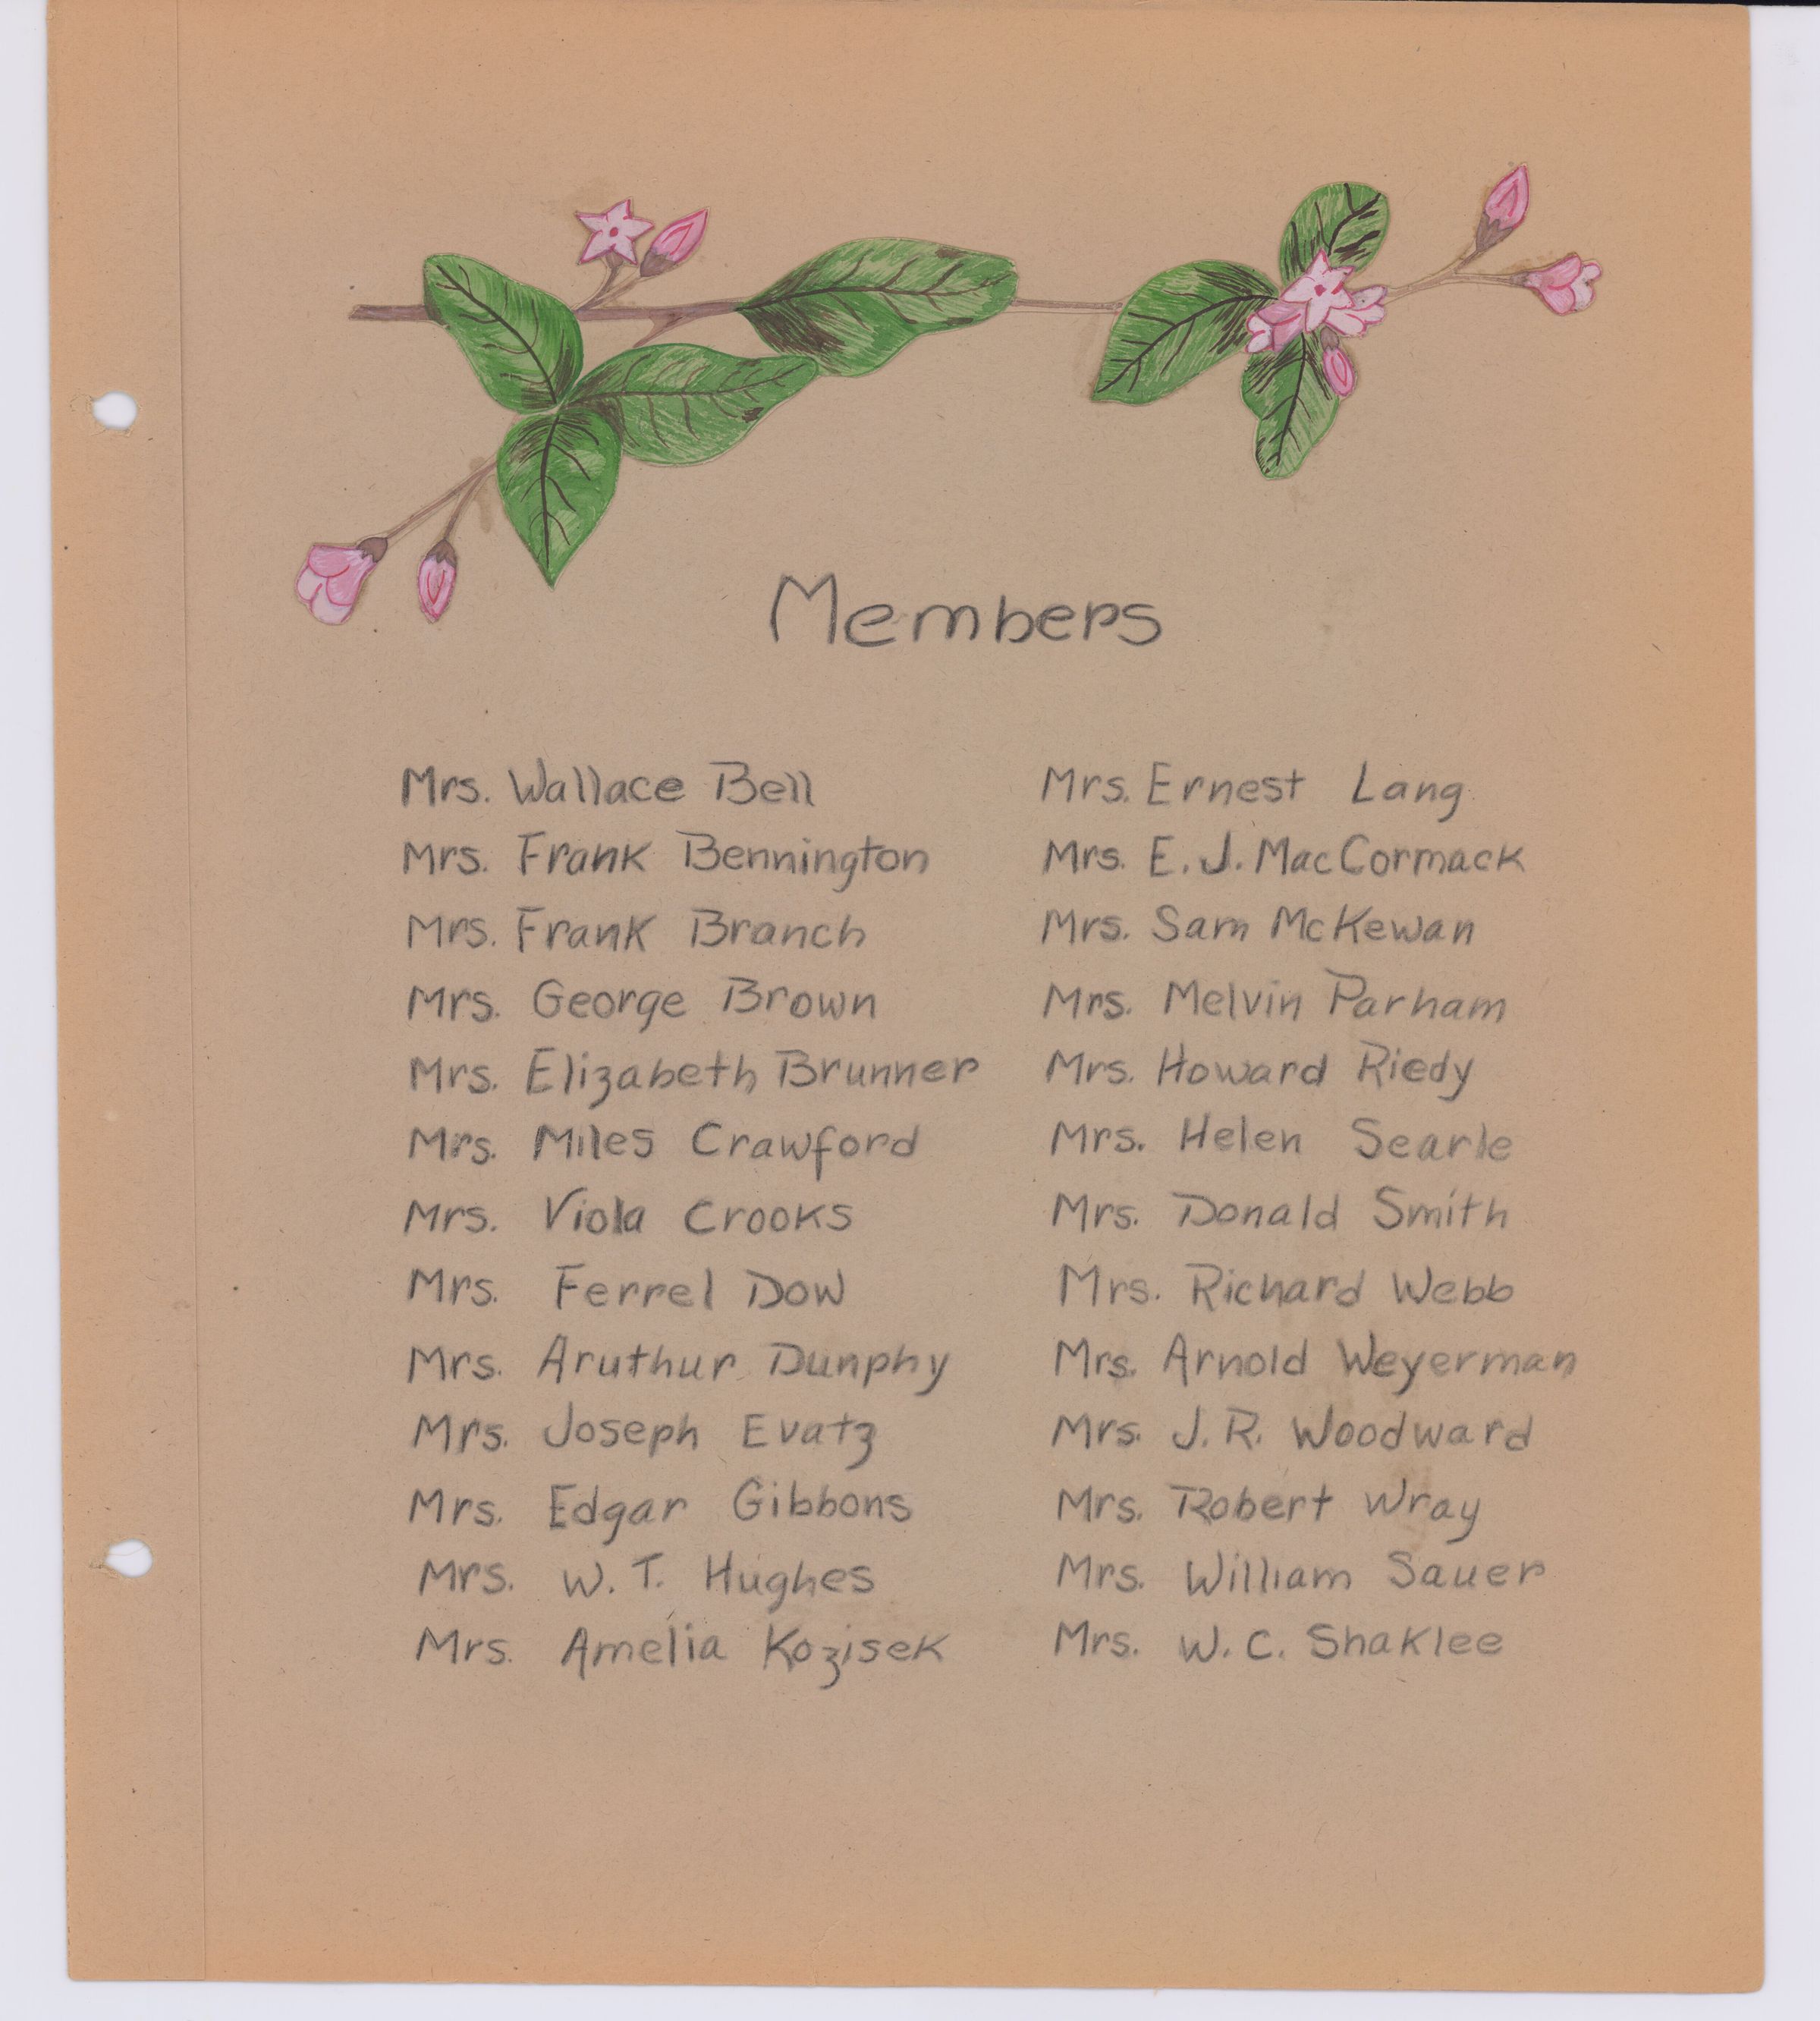 Members
Mrs. Wallace Bell
Mrs. Frank Bennington
Mrs. Frank Branch
Mrs. George Brown
Mrs. Elizabeth Brunner
Mrs. Miles Crawford
Mrs. Viola Crooks
Mrs. Ferrel Dow
Mrs. Aruthur Dunphy
Mrs. Joseph Evatz
Mrs. Edgar Gibbons
Mrs. W. T. Hughes
Mrs. Amelia Kozisek
Mrs. Ernest Lang
Mrs. E. J. MacCormack
Mrs. Sam McKewan
Mrs. Melvin Parham
Mrs. Howard Riedy
Mrs. Helen Searle
Mrs. Donald Smith
Mrs. Richard Webb
Mrs. Arnold Weyerman
Mrs. J. R. Woodward
Mrs. Robert Wray
Mrs. William Sauer
Mrs. W. C. Shaklee